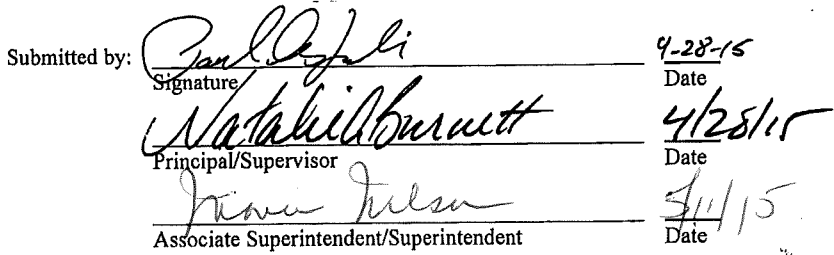 Submitted by: 4-28-15
Signature Date
Natalie A Burnett 4/28/15
Principal/Supervisor Date
Nelson 5/11/15
Associate Superintendent/Superintendent Date